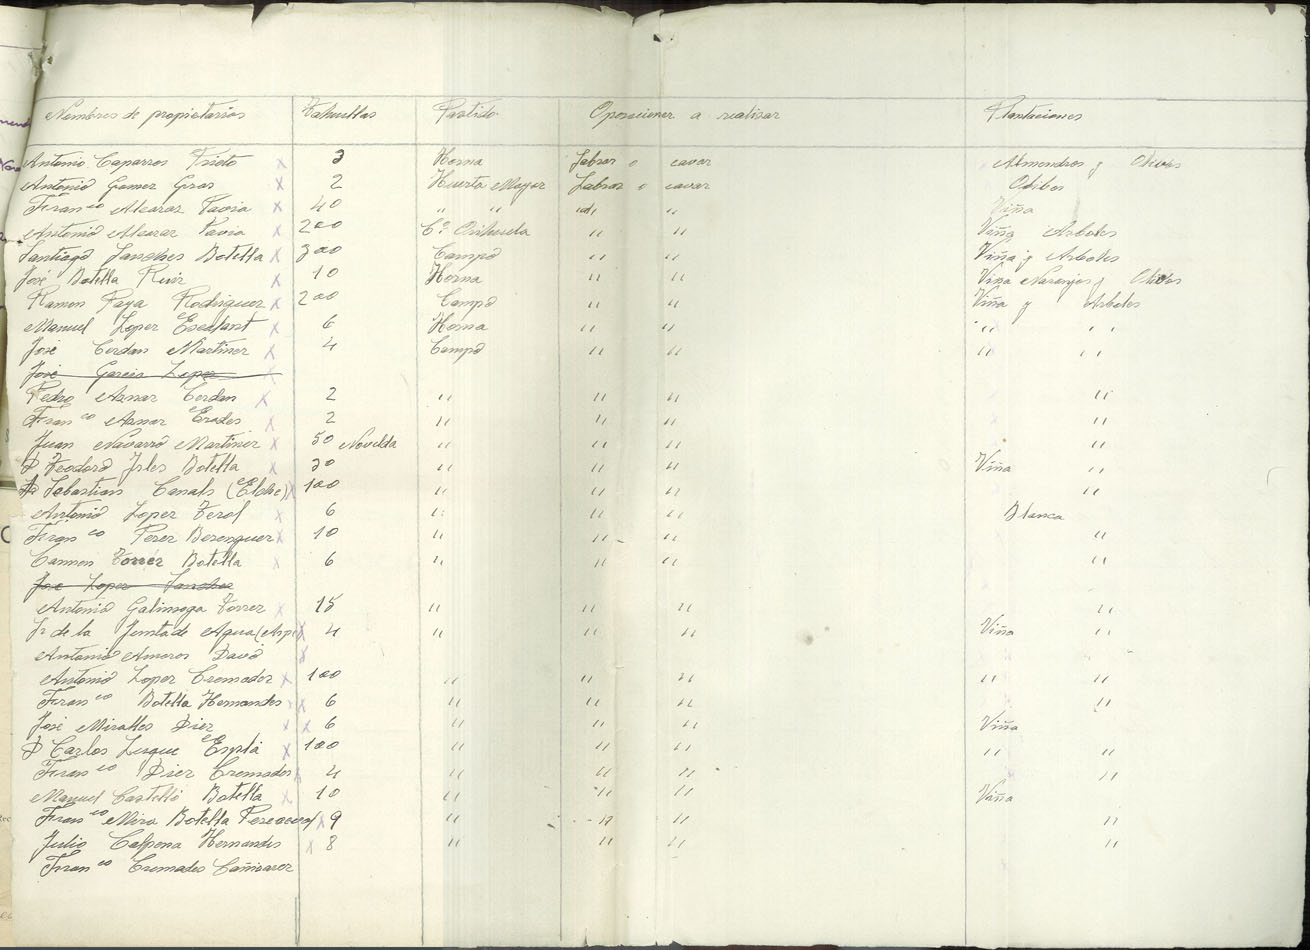 Nombres de propietarios Tahullas Partido Operaciones a realizar Plantaciones
Antonio Caparros Prieto x 3 Horna Labrar o cavar Almendros y Olivos
Antonio Gomez Gras x 2 Huerta Mayor Labrar o cavar Olibos
Franco Alcaraz Pavia x 40 " " id " Viña
Antonio Alcaraz Pavia x 200 Co Orihuela " " Viña Arboles
Santiago Sanches Botella x 300 Campo " " Viña y Arboles
José Botella Ruiz x 10 Horna " " Viña Naranjos y Olibos
Ramon Paya Rodriguez x 200 Campo " " Viña y Arboles
Manuel Lopez Escolant x 6 Horna " " " "
José Cerdan Martinez x 4 Campo " " " "
José Garcia Lopez x
Pedro Aznar Cerdan x 2 " " " "
Franco Aznar Erades x 2 " " " "
Juan Navarro Martinez x 50 Novelda " " " "
D Teodoro Irles Botella x 30 " " " Viña "
Sebastian Canals (Elche) x 100 " " " "
Antonio Lopez Terol x 6 " " " Blanca
Franco Perez Berenguer x 10 " " " "
Carmen Torrés Botella x 6 " " " "
José Lopez Sanchez
Antonio Galinsoga Torrez x 15 " " " "
Sr de la Junta de Agua (Aspe x 4 " " " Viña "
Antonio Amoros Davó x
Antonio Lopez Cremades x 100 " " " " "
Franco Botella Hernandes x 6 " " " "
José Miralles Diez x x 6 " " " Viña
D Carlos Luque Esplá x 100 " " " " "
Franco Diez Cremades x 4 " " " "
Manuel Castelló Botella x 10 " " " Viña
Franco Mira Botella x 9 " " " "
Julio Calpena Hernandes x 8 " " " "
Franco Cremades Cañizarez